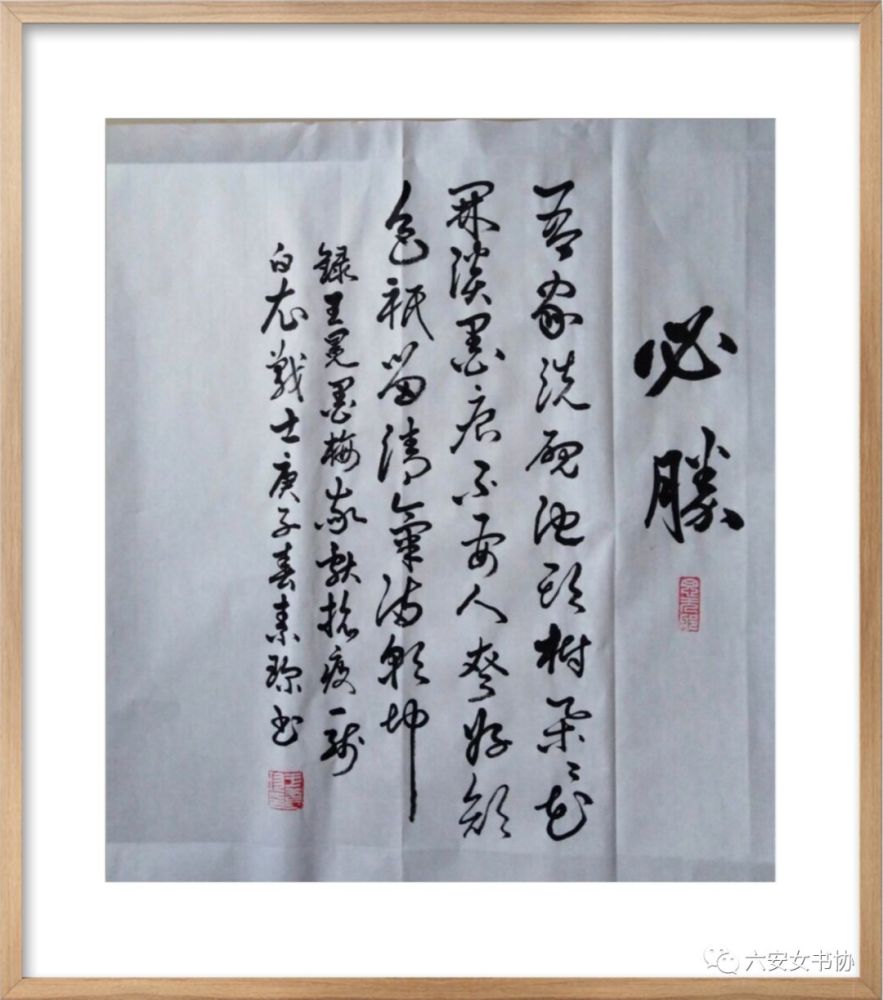 必勝
吾家洗硯池頭樹朵々花
開淡墨痕不要人誇好顏
色祇留清氣滿乾坤
錄王冕墨梅敬獻抗疫一線
白衣戰士庚子春素珍书
六安女书协